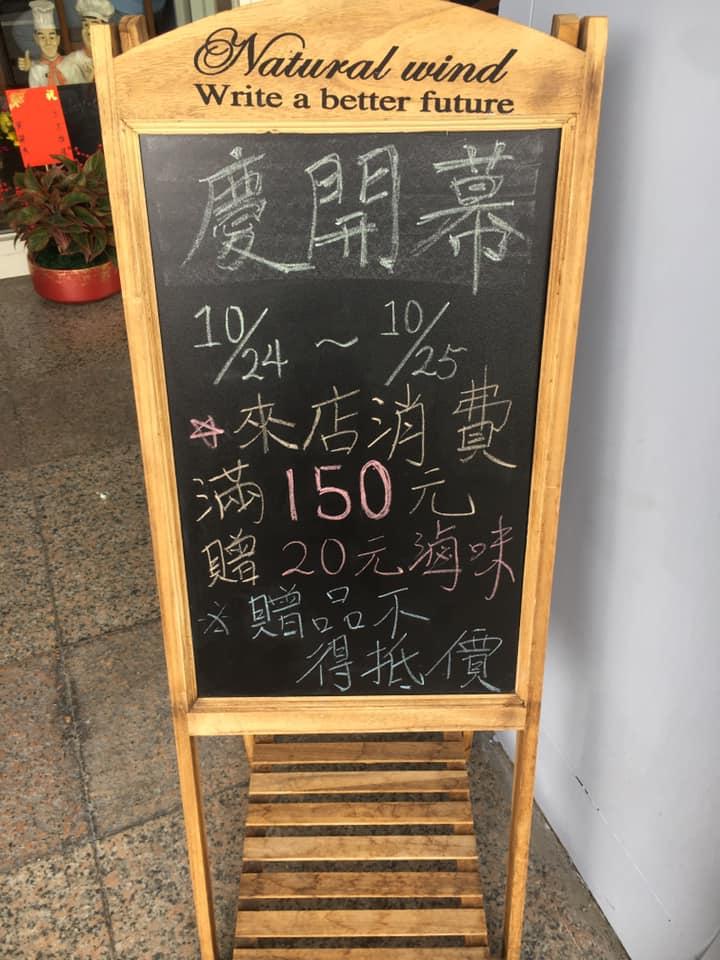 Natural wind
Write a better future
慶開幕
10/24 ~ 10/25
☆來店消費
滿150元
贈20元滷味
※贈品不
得抵價